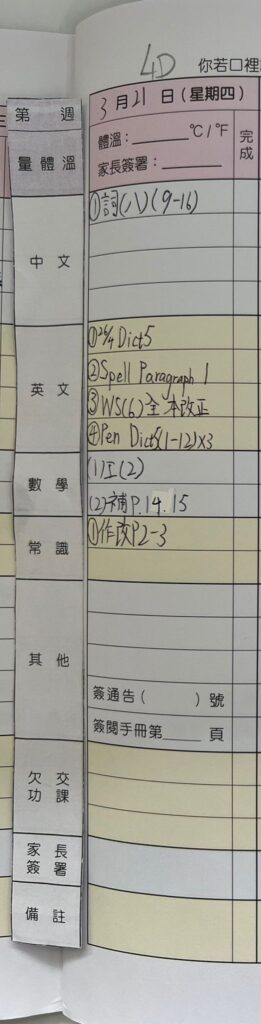 4D 你若口裡
3月21日(星期四)
第 週
量體溫
體溫:______℃/℉
家長簽署:______
完成
中文
①詞(八)(9-16)
英文
①26/4 Dict5
②Spell Paragraph 1
③WS(6)全本改正
④Pen Dict5(1-12)x3
數學
(1)工(2)
(2)補P.14.15
常識
①作改P2-3
其他
簽通告( )號
簽閱手冊第____頁
欠交功課
家長簽署
備註